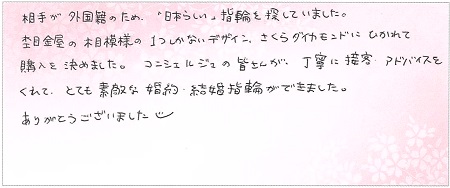 相手が外国籍のため、"日本らしい"指輪を探していました。
杢目金屋の木目模様の1つしかないデザイン、さくらダイヤモンドにひかれて
購入を決めました。コンシェルジュの皆さんが、丁寧に接客・アドバイスを
くれて、とても素敵な婚約・結婚指輪ができました。
ありがとうございました